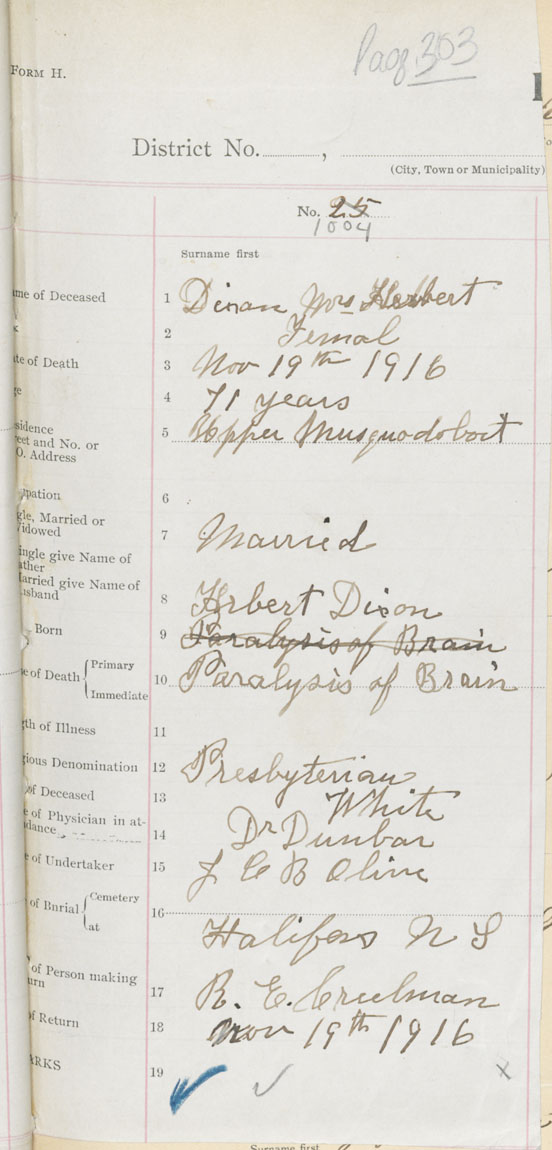 Page 303
FORM H.
District No. ,
(City, Town or Municipality)
No. 25
1004
Surname first
me of Deceased 1 Dixon Mrs Herbert
x 2 Femal
te of Death 3 Nov 19th 1916
ge 4 71 years
sidence
eet and No. or 5 Upper Musquodoboit
O. Address
upation 6
gle, Married or
Vidowed 7 Married
ingle give Name of
ather
arried give Name of
usband 8 Hrbert Dixon
Born 9 Paralysis of Brain
e of Death { Primary
Immediate 10 Paralysis of Brain
gth of Illness 11
gious Denomination 12 Presbyterian
of Deceased 13 White
e of Physician in at-
dance 14 Dr Dunbar
e of Undertaker 15 J C B Olive
of Burial { Cemetery
at 16
Halifers N S
of Person making
urn 17 R. E. Creelman
of Return 18 Nov 19th 1916
ARKS 19
Surname first